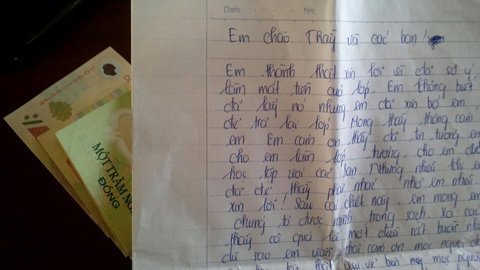 Date No.
Em chào Thầy và các bạn!
Em thành thật xin lỗi vì đã sơ ý
làm mất tiền của lớp. Em không biết
đã lấy nó nhưng em đã xin bố em
để trả lại lớp. Mong thầy thông cảm
em. Em cảm ơn thầy đã tin tưởng em
cho em làm lớp trưởng, cho em được
học tập với các bạn. Nhưng nhiều khi em
đã để thầy phải nhắc nhở em nhiều
xin lỗi! Sau cái chết này em mong em
chứng tỏ được mình trong sạch. Xa các
thầy cô quả là một điều rất buồn
chỉ sao em vẫn cảm ơn mọi người
MỘT TRĂM
ĐỒNG